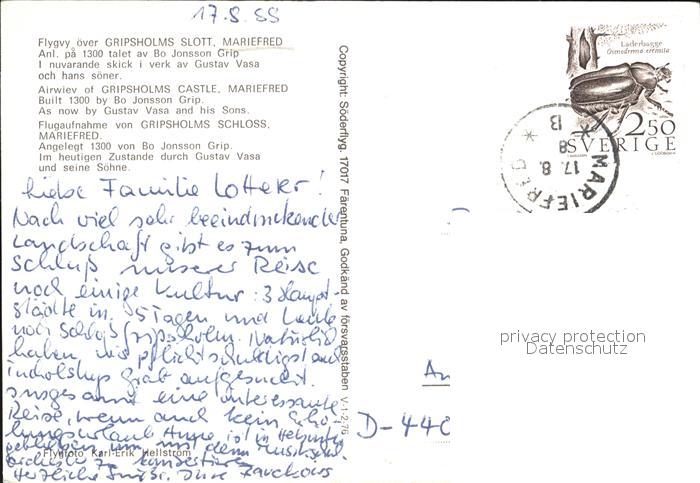 17.8.88
Flygvy över GRIPSHOLMS SLOTT, MARIEFRED
Anl. på 1300 talet av Bo Jonsson Grip
I nuvarande skick i verk av Gustav Vasa
och hans söner.
Airwiev of GRIPSHOLMS CASTLE, MARIEFRED
Built 1300 by Bo Jonsson Grip.
As now by Gustav Vasa and his Sons.
Flugaufnahme von GRIPSHOLMS SCHLOSS,
MARIEFRED.
Angelegt 1300 von Bo Jonsson Grip.
Im heutigen Zustande durch Gustav Vasa
und seine Söhne.
Liebe Familie Lotterer!
Nach viel sehr beeindruckender
Landschaft gibt es zum
Schluß unserer Reise
noch einige Kultur: 3 Haupt-
städte in 5 Tagen und heute
noch Schloß Gripsholm. Natürlich
haben wir pflichtschuldigst auch
Tucholskys Grab aufgesucht.
Insgesamt eine interessante
Reise, wenn auch kein Erho-
lungsurlaub. Anne ist in
geblieben um mit dem
zu konzertieren.
Herzliche Grüße, Ihre
Flygfoto Karl-Erik Hellström
Copyright: Söderflyg. 17017 Färentuna, Godkänd av försvarsstaben V-1-2-76
Läderbagge
Osmoderma eremita
2.50
SVERIGE
MARIEFRED
17.8.
88
13
An
D-440
privacy protection
Datenschutz